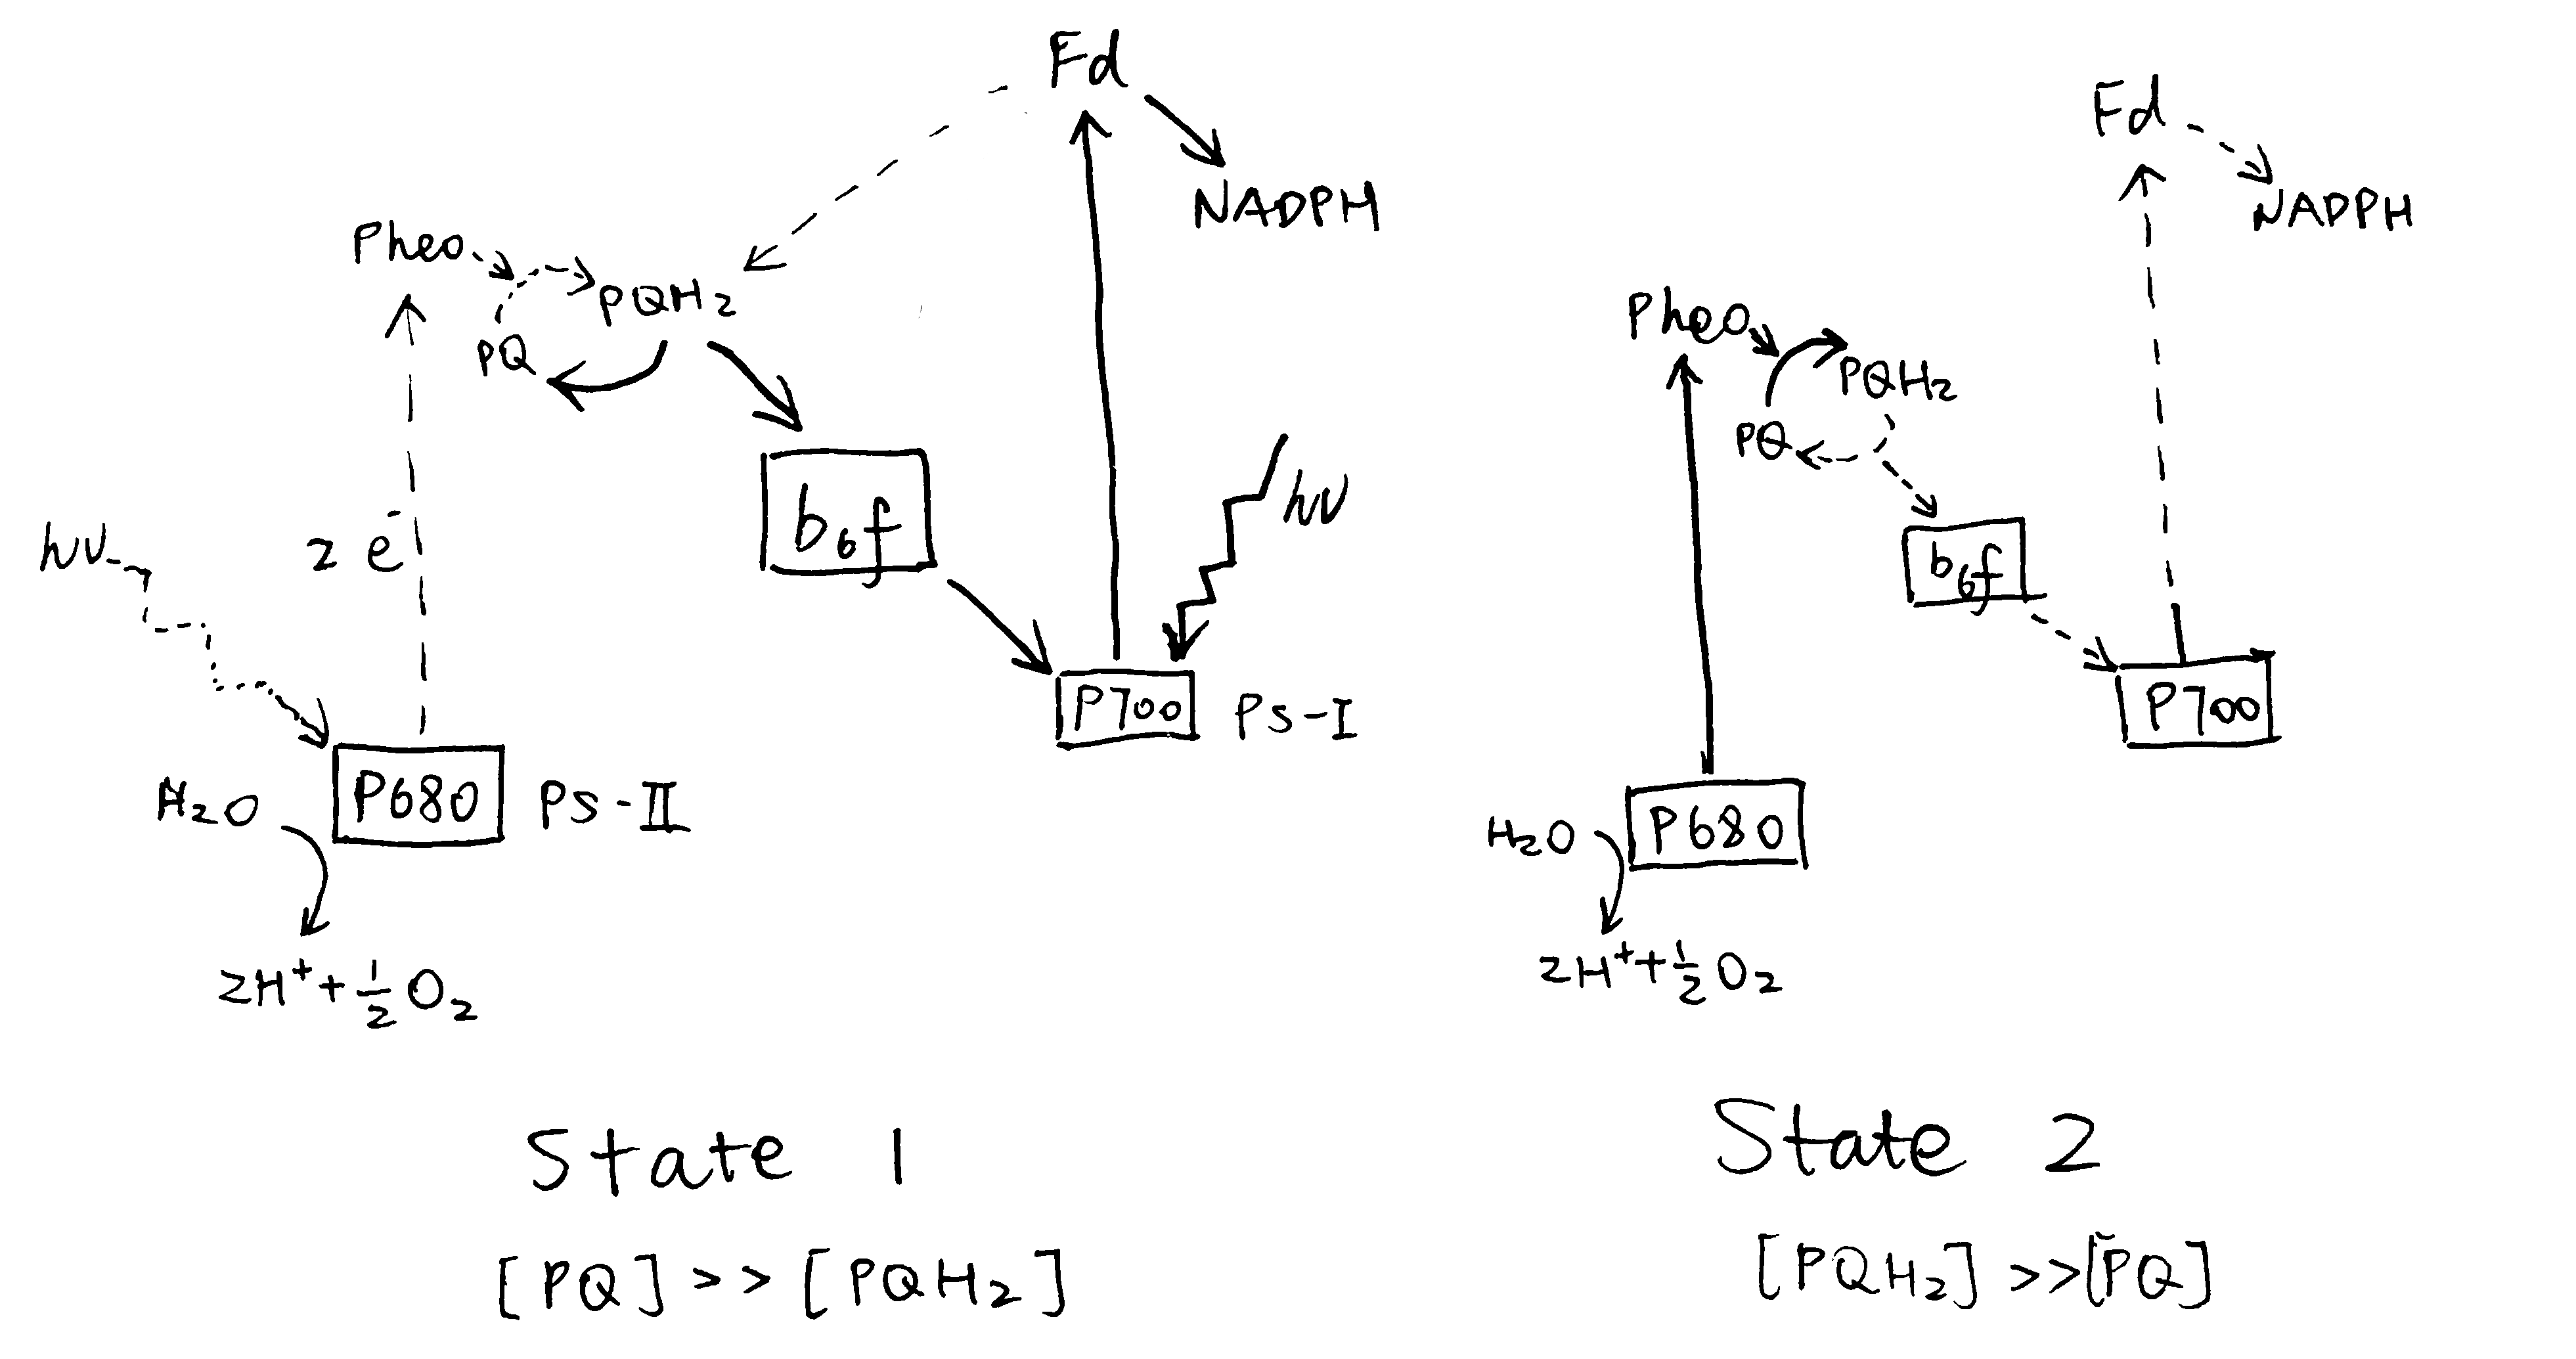 Fd
NADPH
Pheo
PQH2
PQ
b6f
hν
hν
2 e-
P700
PS-I
P680
PS-II
H2O
2H+ + 1/2 O2
State 1
[PQ] >> [PQH2]
Fd
NADPH
Pheo
PQH2
PQ
b6f
P700
P680
H2O
2H+ + 1/2 O2
State 2
[PQH2] >> [PQ]